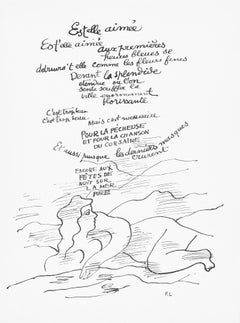 Est-elle aimée
Est-elle aimée
aux premières
heures bleues se
détruira-t-elle comme les fleurs feues
Devant la splendide
étendue où l'on
sente souffler la
ville énormément
florissante
C'est trop beau
c'est trop beau
Mais c'est nécessaire
POUR LA PÊCHEUSE
ET POUR LA CHANSON
DU CORSAIRE
Et aussi puisque les derniers masques
crurent
ENCORE AUX
FÊTES DE
NUIT SUR
LA MER
PURE
F.L